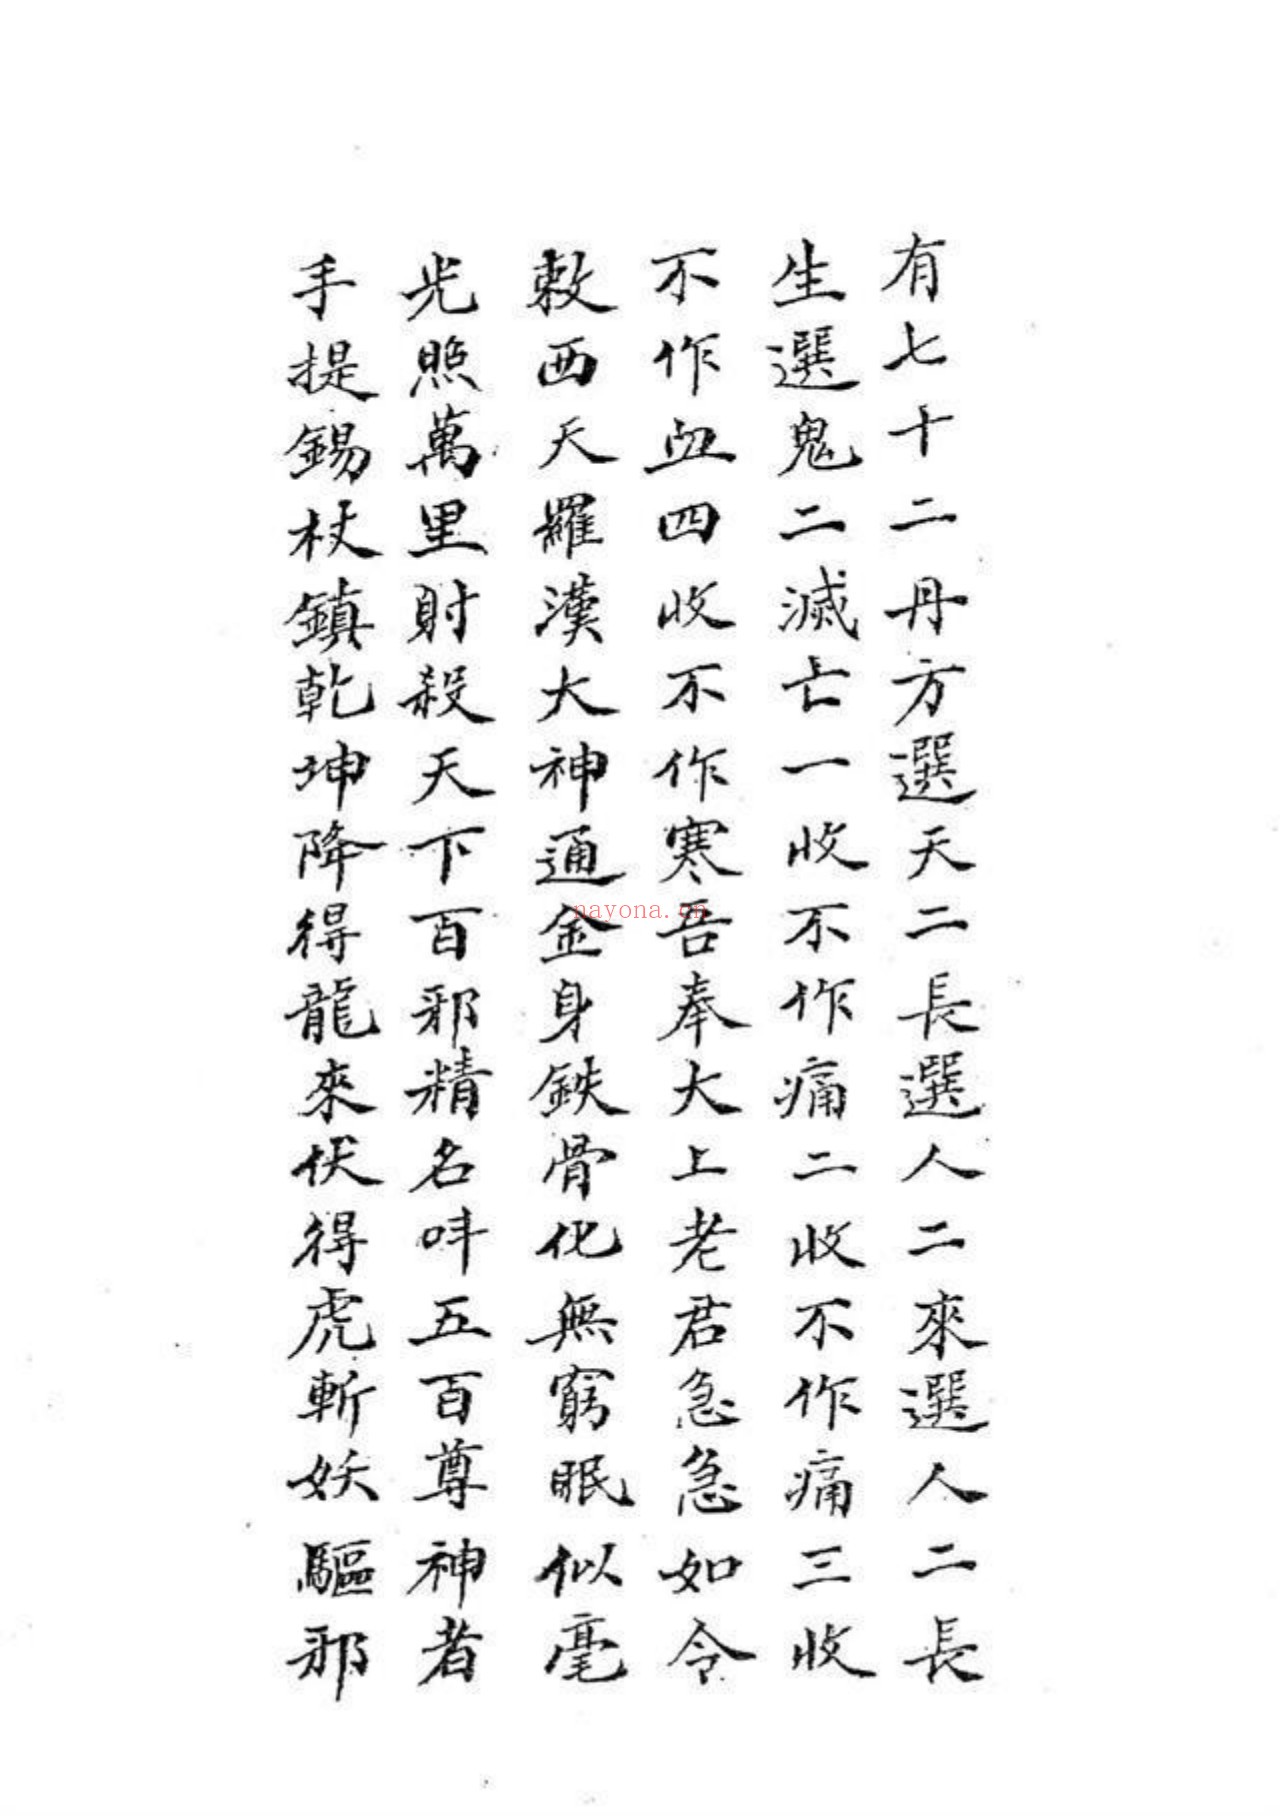 有七十二丹方選天二長選人二來選人二長
生選鬼二滅亡一收不作痛二收不作痛三收
不作血四收不作寒吾奉大上老君急急如令
敕西天羅漢大神通金身鉄骨化無窮眠似毫
光照萬里射殺天下百邪精名呌五百尊神者
手提錫杖鎮乾坤降得龍來伏得虎斬妖驅邪
nayona.cn